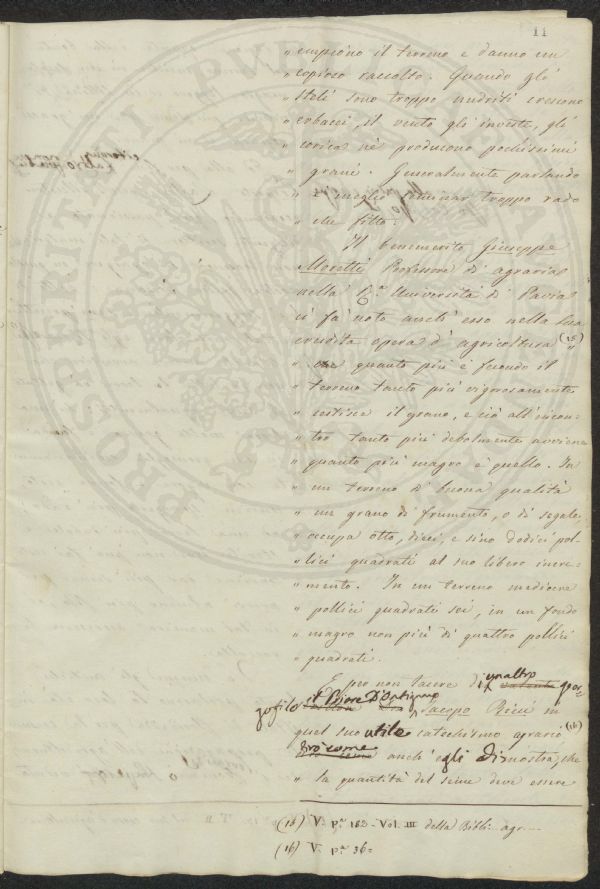 11
" empiono il terreno e danno un
" copioso raccolto. Quando gli
" steli sono troppo nudriti crescono
" erbacei, il vento gli investe, gli
" corica nè producono pochissimi
" grani. Generalmente parlando
" è meglio seminar troppo rado
" che fitto.
Il benemerito Giuseppe
Moretti Professore di agraria
nella R.ª Università di Pavia
ci fà noto anch' esso nella sua
erudita opera d' agricoltura (15)
" che quanto più è fecondo il
" terreno tanto più vigorosamente
" cestisce il grano, e ciò all' incon-
" tro tanto più debolmente avviene
" quanto più magro è quello. In
" un terreno di buona qualità
" un grano di frumento, o di segale,
" occupa otto, dieci, e sino dodici pol-
" lici quadrati al suo libero incre-
" mento. In un terreno mediocre
" pollici quadrati sei, in un fondo
" magro non più di quattro pollici
" quadrati.
E per non tacere di un altro geor-
gofilo il Priore Jacopo Ricci in
quel suo utile catechismo agrario (16)
come anch' egli dimostra, che
" la quantità del seme deve essere
(15) V. p.ª 183 - Vol. III della Bibli. agr.
(16) V. p.ª 36=